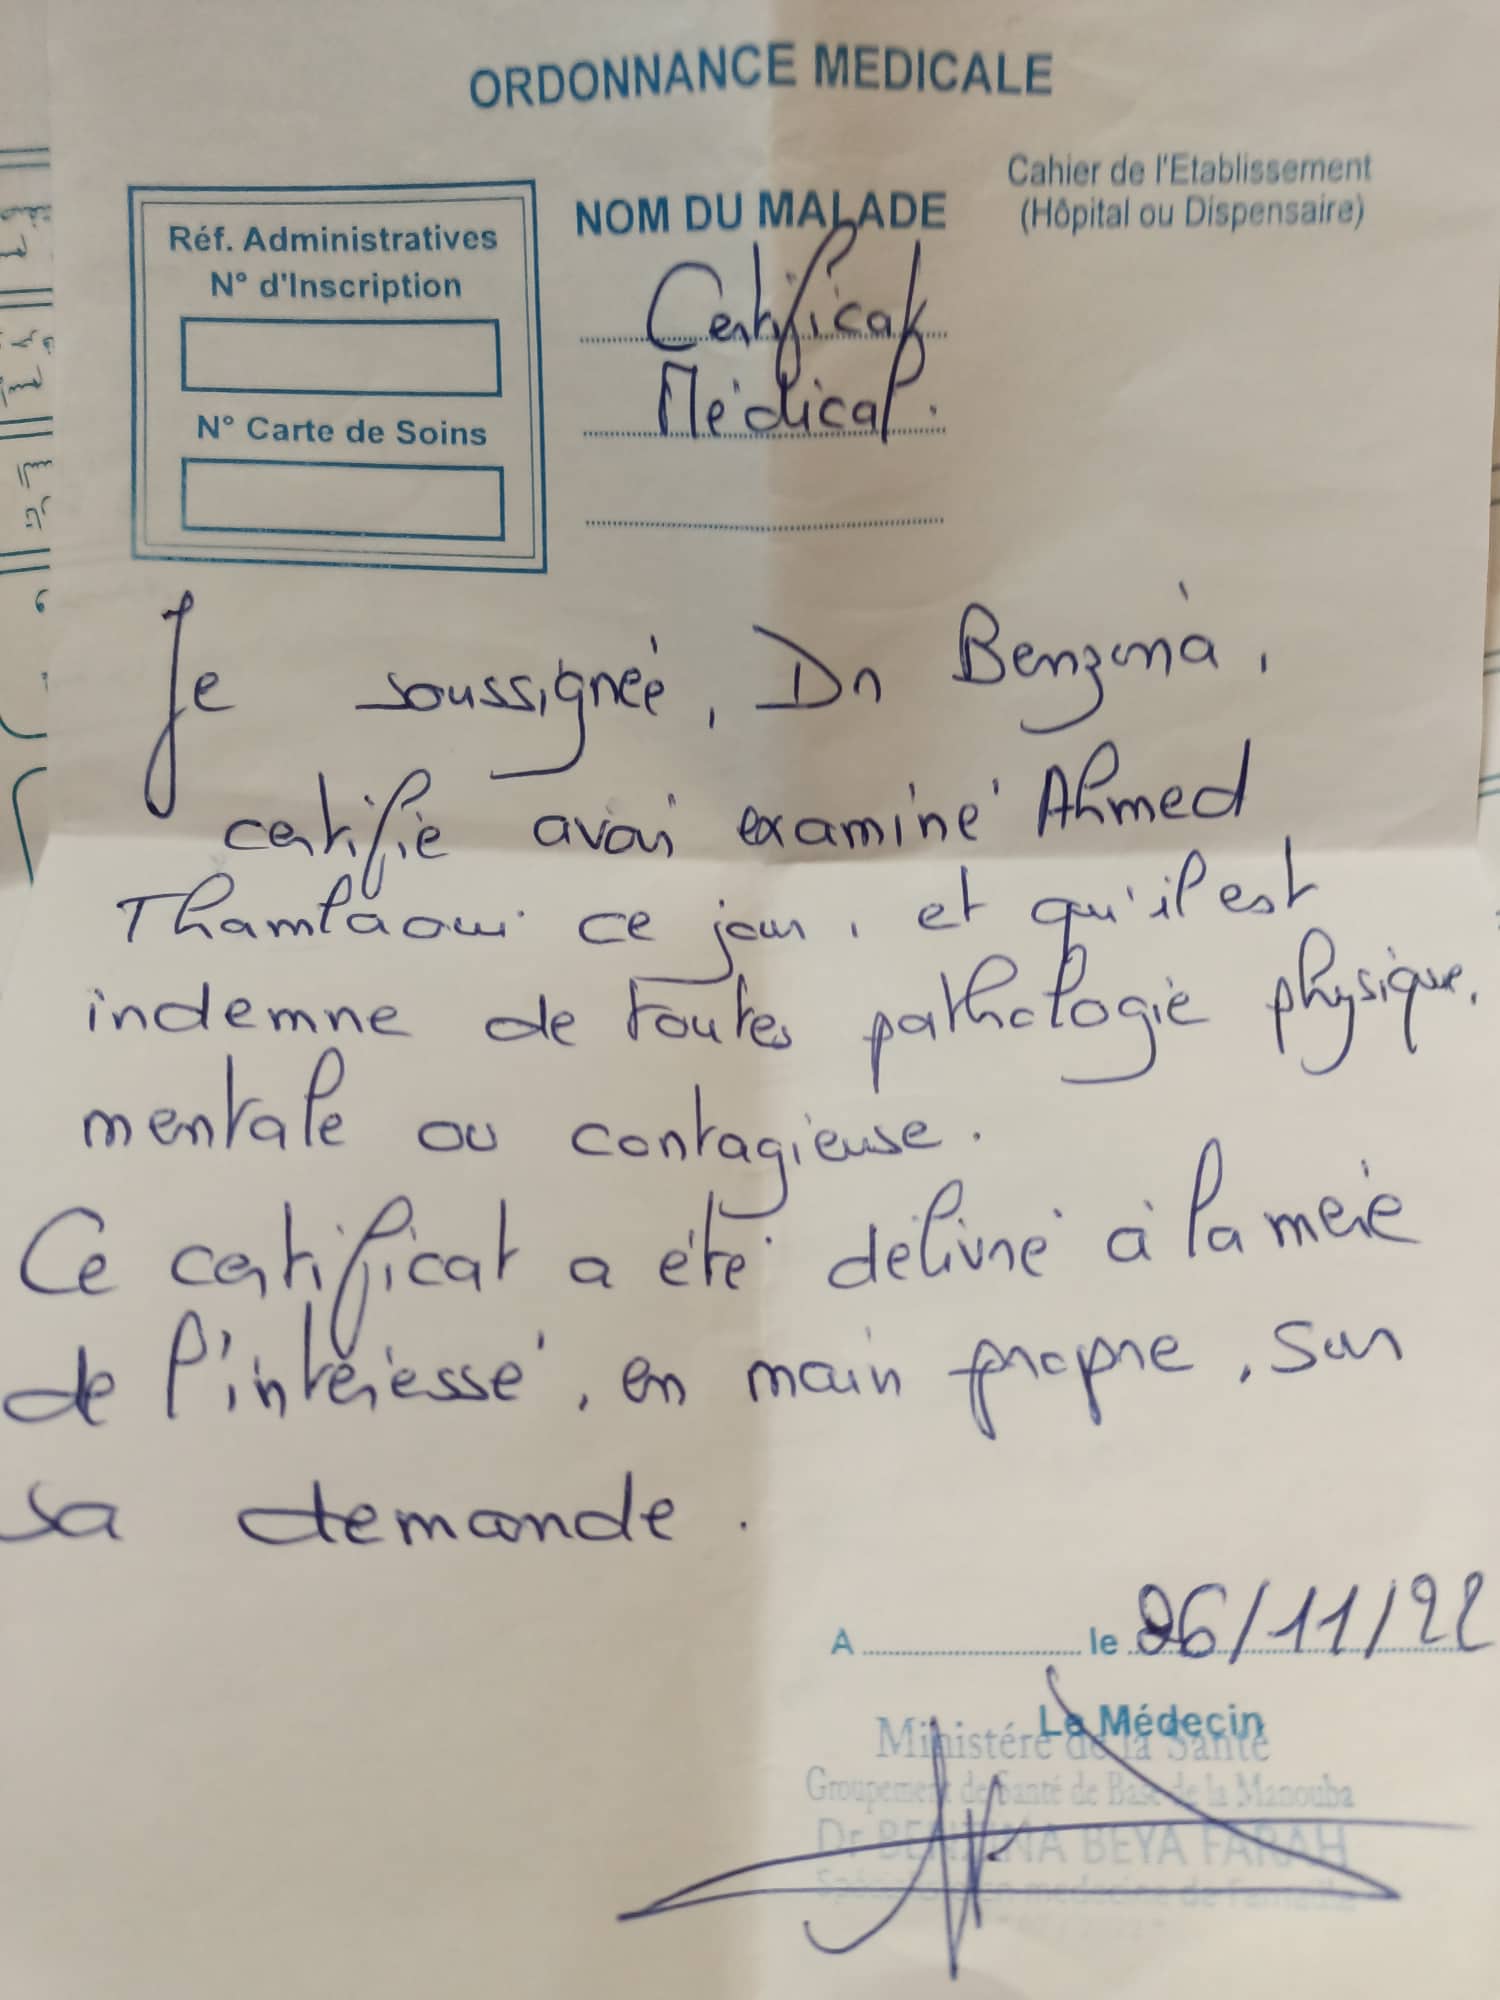 ORDONNANCE MEDICALE
Cahier de l'Etablissement
(Hôpital ou Dispensaire)
Réf. Administratives
N° d'Inscription
N° Carte de Soins
NOM DU MALADE
Certificat
Médical.
Je soussignée, Dr Benzina,
certifie avoir examiné Ahmed
Thamlaoui ce jour, et qu'il est
indemne de toutes pathologie physique,
mentale ou contagieuse.
Ce certificat a été délivré à la mère
de l'intéressé, en main propre, sur
sa demande.
A le 26/11/22
Le Médecin
Ministére de la Santé
Groupement de Santé de Base de la Manouba
Dr BENZINA BEYA FARAH
medecine de Famille